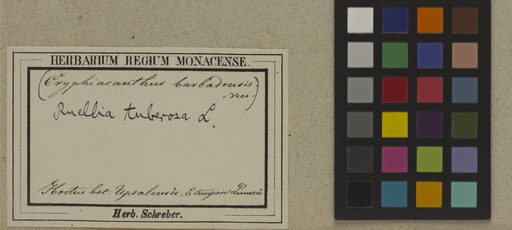 HERBARIUM REGIUM MONACENSE.
(Cryphiacanthus barbadensis.
Nees.)
Ruellia tuberosa L.
Hortus bot. Upsalensis.
Herb. Schreber.